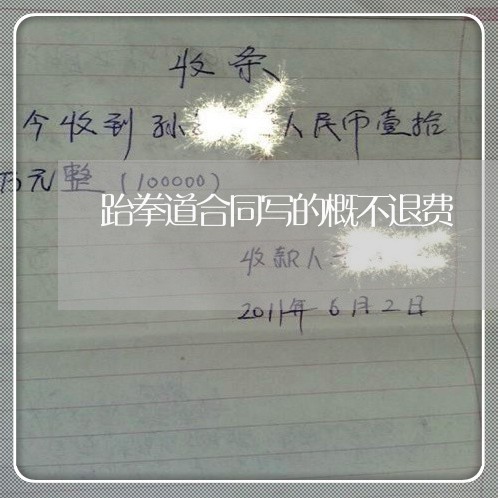 收条
今收到孙 人民币壹拾
万元整(100000)
跆拳道合同写的概不退费
收款人
2011年6月2日